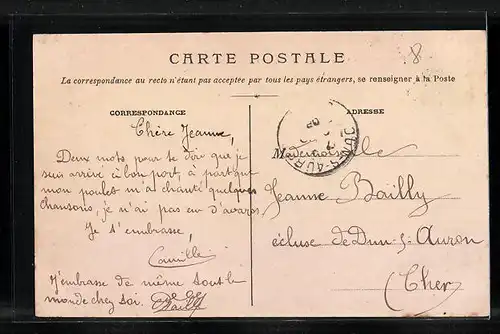 CARTE POSTALE
La correspondance au recto n'étant pas acceptée par tous les pays étrangers, se renseigner à la Poste
8
CORRESPONDANCE
Chère Jeanne,
Deux mots pour te dir que je
suis arrivé à bon port, à part que
mon poulet m'a chanté quelques
chansons, je n'ai pas eu d'avaros
Je t'embrasse,
Camille
J'embrasse de même tout le
monde chez toi.
ADRESSE
Mademoiselle
Jeanne Bailly
écluse de Dun s/ Auron
(Cher)